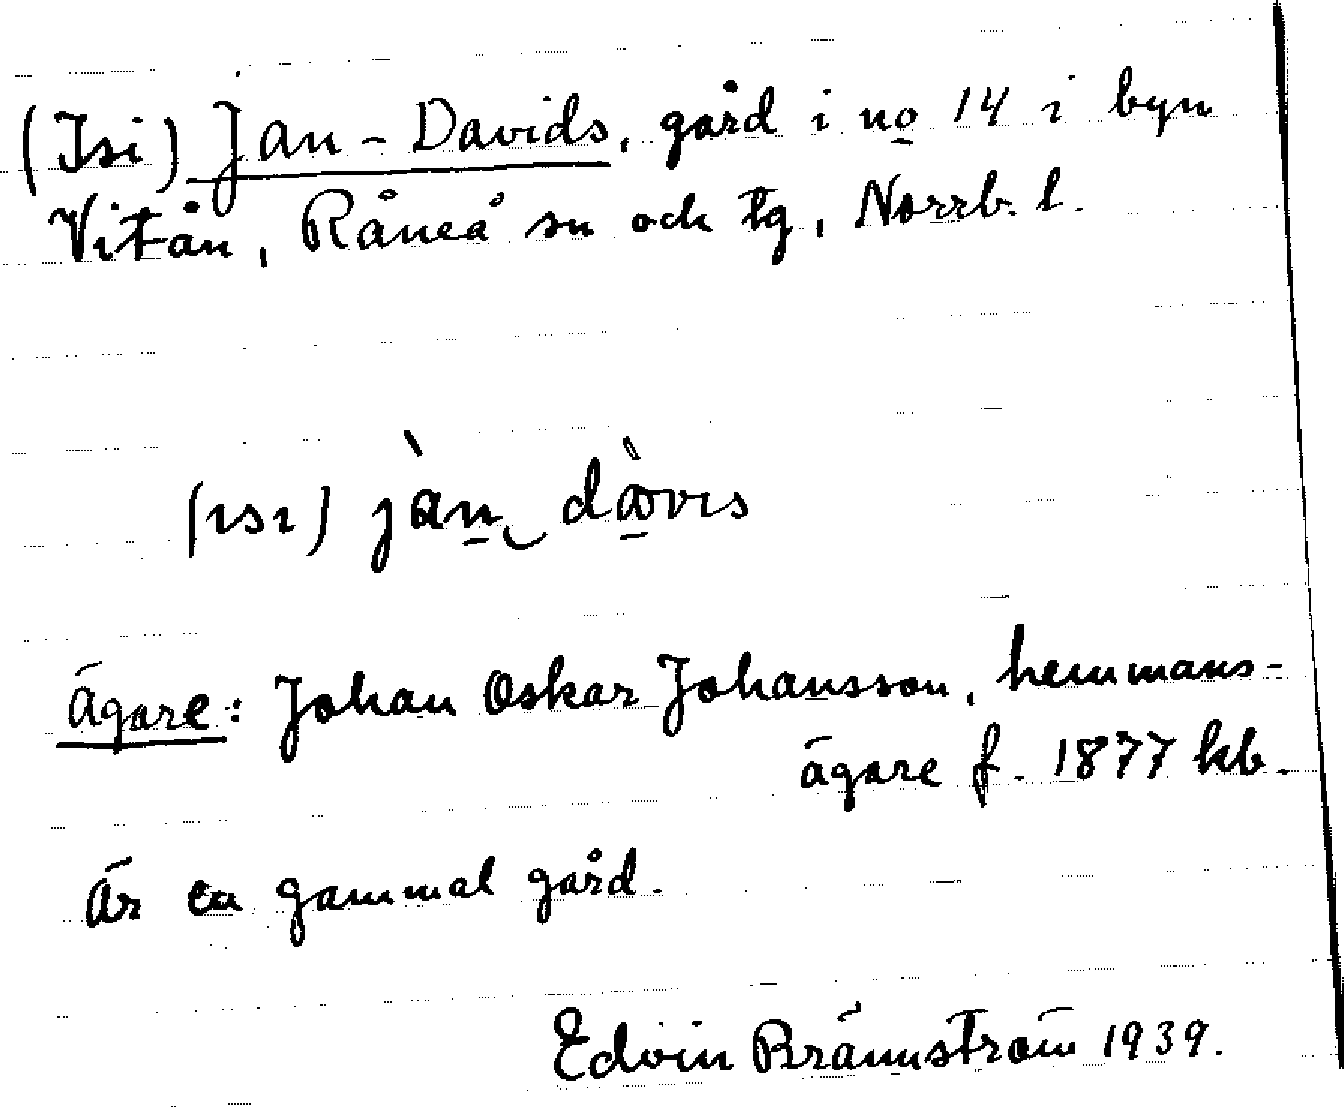 (Isi) Jan-Davids, gård i no 14 i byn
Vitån, Råneå sn och tg, Norrb. l.
(ısı) jàn̠‿dà̠vıs
Ägare: Johan Oskar Johansson, hemmans-
ägare f. 1877 kb.
Är en gammal gård.
Edvin Brännström 1939.